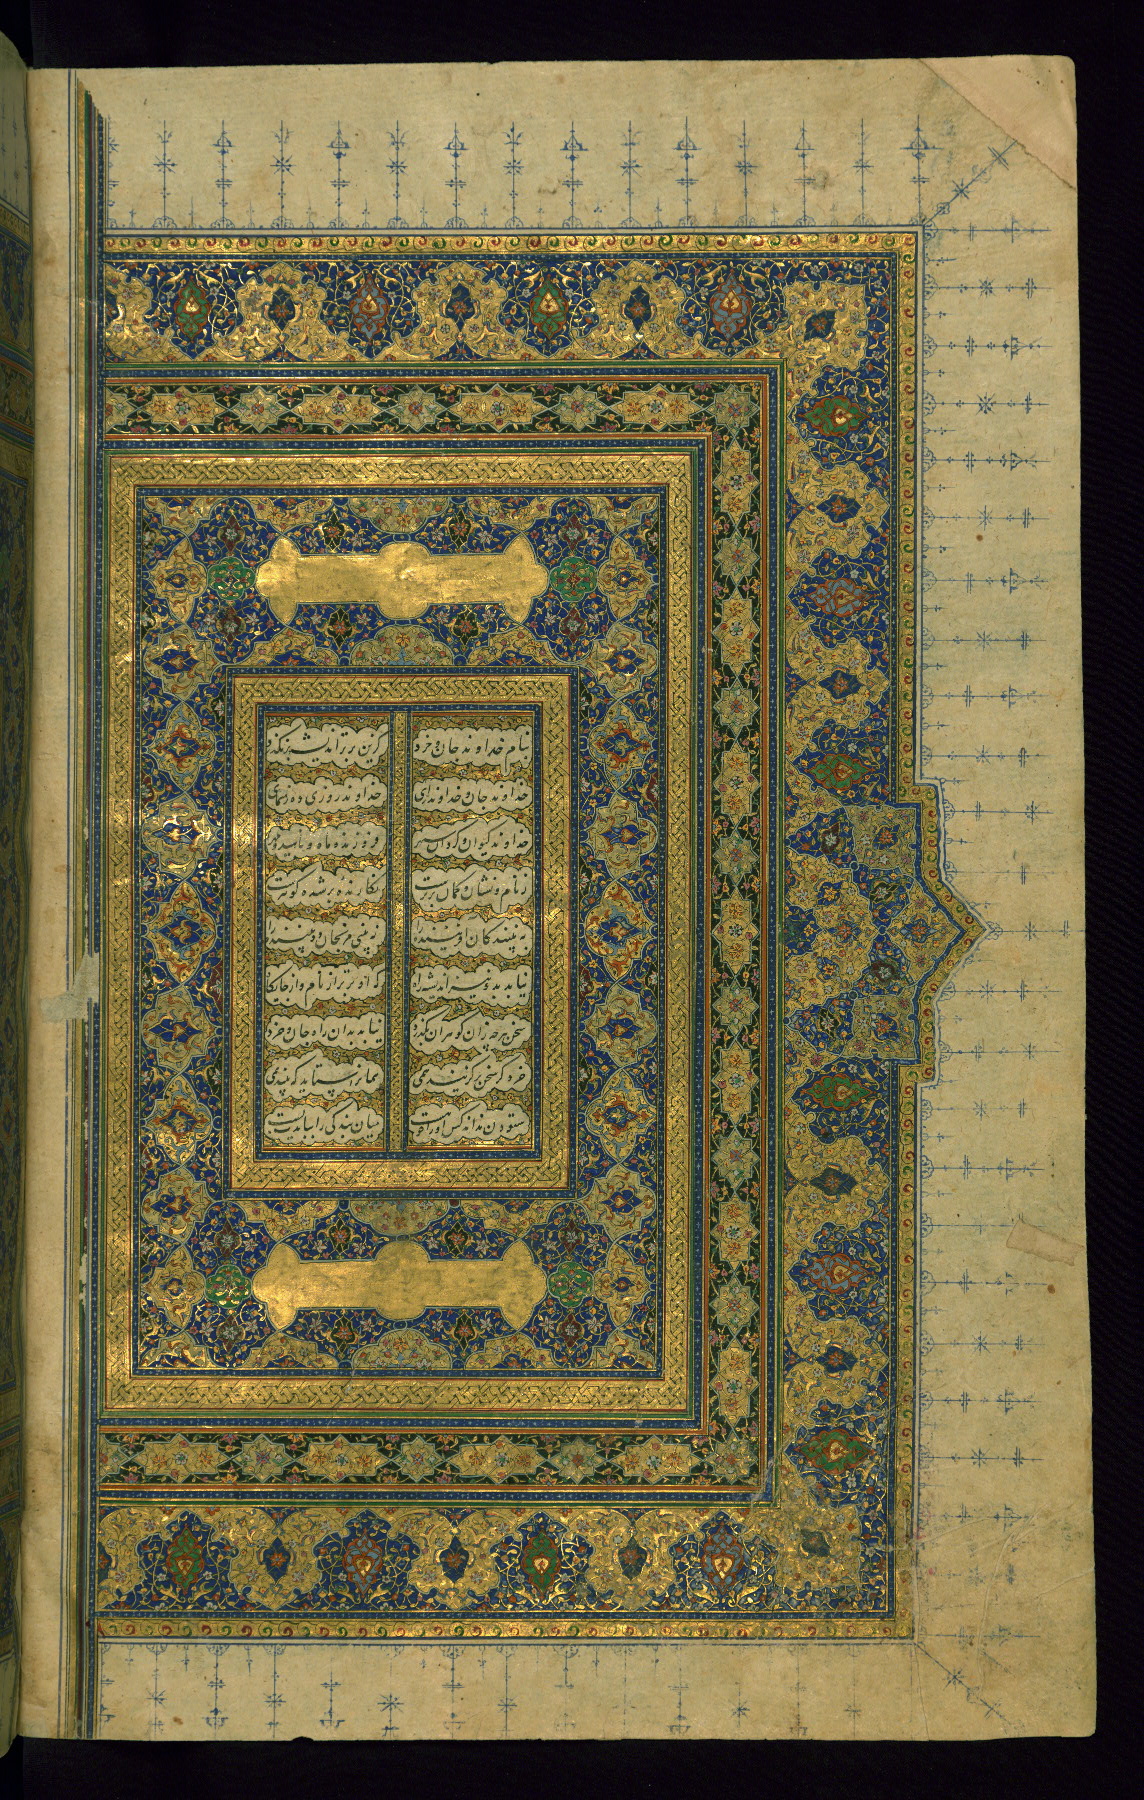 بنام خداوند جان و خرد کزین برتر اندیشه برنگذرد
خداوند جان و خداوند رای خداوند روزی ده رهنمای
خداوند کیوان و گردان سپهر فروزنده ماه و ناهید و مهر
ز نام و نشان و گمان برترست نگارنده بر شده گوهرست
به بینندگان آفریننده را نه بینی مرنجان دو بیننده را
نیابد بدو نیز اندیشه راه که او برتر از نام و از جایگاه
سخن هر چه زین گوهران بگذرد نیابد بدان راه جان و خرد
خرد گر سخن برگزیند همی همانرا ستاید که بیند همی
ستودن نداند کس او را چو هست میان بندگی را ببایدت بست